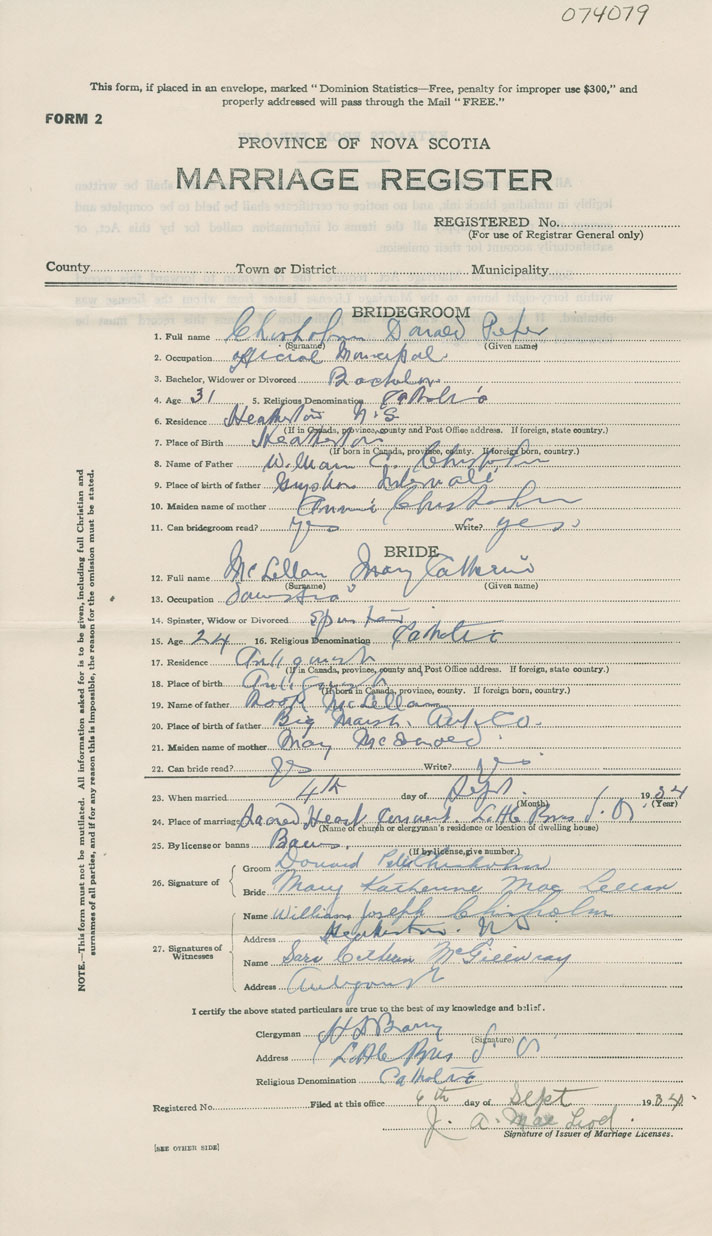 074079
This form, if placed in an envelope, marked "Dominion Statistics—Free, penalty for improper use $300," and
properly addressed will pass through the Mail "FREE."
FORM 2
PROVINCE OF NOVA SCOTIA
MARRIAGE REGISTER
REGISTERED No.
(For use of Registrar General only)
County Town or District Municipality
BRIDEGROOM
1. Full name Chisholm Donald Peter
(Surname) (Given name)
2. Occupation Official Municipal
3. Bachelor, Widower or Divorced Bachelor
4. Age 31 5. Religious Denomination Catholic
6. Residence Heatherton N.S
(If in Canada, province, county and Post Office address. If foreign, state country.)
7. Place of Birth Heatherton
(If born in Canada, province, county. If foreign born, country.)
8. Name of Father William Chisholm
9. Place of birth of father Intervale
10. Maiden name of mother Annie Chisholm
11. Can bridegroom read? yes Write? yes
BRIDE
12. Full name McLellan Mary Catherine
(Surname) (Given name)
13. Occupation
14. Spinster, Widow or Divorced Spinster
15. Age 24 16. Religious Denomination Catholic
17. Residence Antigonish
(If in Canada, province, county and Post Office address. If foreign, state country.)
18. Place of birth Antigonish
(If born in Canada, province, county. If foreign born, country.)
19. Name of father McLellan
20. Place of birth of father Big Marsh, Ant. Co.
21. Maiden name of mother Mary McDonald
22. Can bride read? yes Write? yes
23. When married 4th day of Sept. 1934
(Month) (Year)
24. Place of marriage Sacred Heart Convent. Little Bras d'Or
(Name of church or clergyman's residence or location of dwelling house)
25. By license or banns Banns.
(If by license, give number.)
26. Signature of
Groom Donald Peter Chisholm
Bride Mary Katherine MacLellan
27. Signatures of
Witnesses
Name William Joseph Chisholm
Address Heatherton. N.S
Name Sara McGillivray
Address Antigonish
I certify the above stated particulars are true to the best of my knowledge and belief.
Clergyman Barry
(Signature)
Address Little Bras d'Or
Religious Denomination Catholic
Registered No. Filed at this office 6th day of Sept 1934.
J. A. MacLeod.
Signature of Issuer of Marriage Licenses.
[SEE OTHER SIDE]
NOTE.—This form must not be mutilated. All information asked for is to be given, including full Christian and
surnames of all parties, and if for any reason this is impossible, the reason for the omission must be stated.